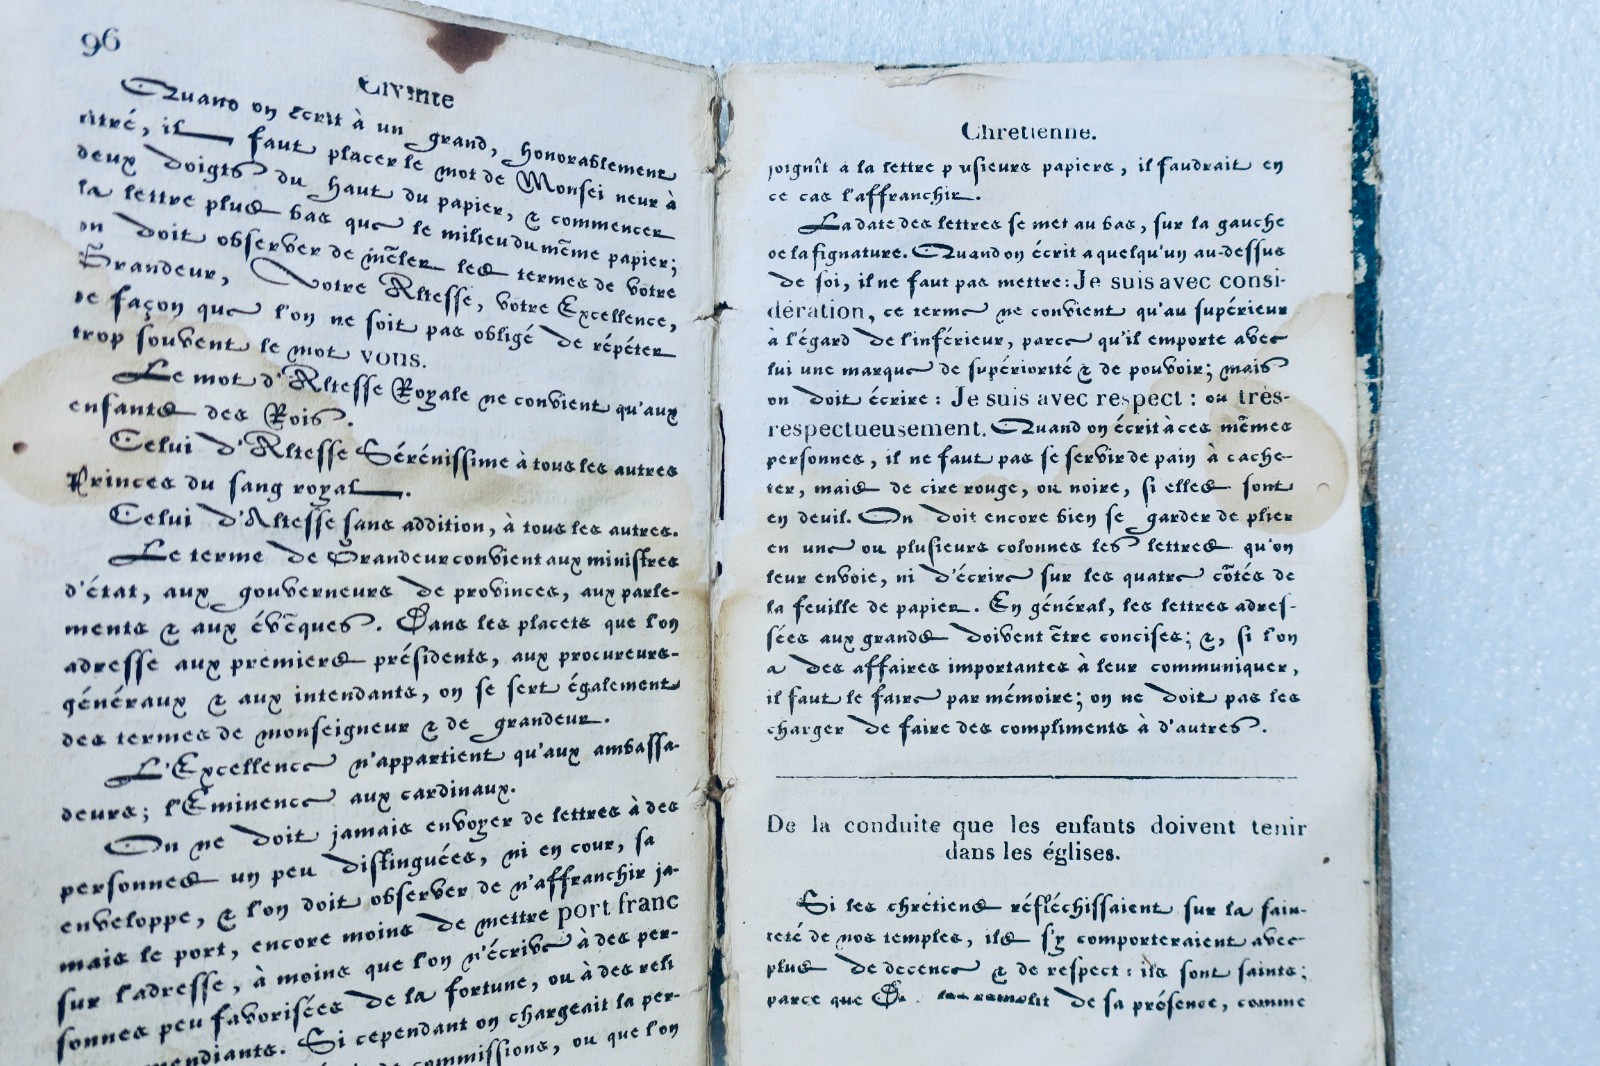 96
Civilité
Quand on écrit à un grand, honorablement
titré, il faut placer le mot de Monsei neur à
deux doigts du haut du papier, & commencer
la lettre plus bas que le milieu du même papier;
on doit observer de mêler les termes de votre
Grandeur, Votre Altesse, votre Excellence,
de façon que l'on ne soit pas obligé de répéter
trop souvent le mot vous.
Le mot d'Altesse Royale ne convient qu'aux
enfants des Rois.
Celui d'Altesse Sérénissime à tous les autres
Princes du sang royal.
Celui d'Altesse sans addition, à tous les autres.
Le terme de Grandeur convient aux ministres
d'état, aux gouverneurs de provinces, aux parle-
ments & aux évêques. Dans les placets que l'on
adresse aux premiers présidents, aux procureurs-
généraux & aux intendants, on se sert également
des termes de monseigneur & de grandeur.
L'Excellence n'appartient qu'aux ambassa-
deurs; l'Eminence aux cardinaux.
On ne doit jamais envoyer de lettres à des
personnes un peu distinguées, ni en cour, sa
enveloppe, & l'on doit observer de n'affranchir ja-
mais le port, encore moins de mettre port franc
sur l'adresse, à moins que l'on n'écrive à des per-
sonnes peu favorisées de la fortune, ou à des reli
mendiants. Si cependant on chargeait la per-
de commissions, ou que l'on
Chretienne.
joignît a la lettre p usieurs papiers, il faudrait en
ce cas l'affranchir.
La date des lettres se met au bas, sur la gauche
de la signature. Quand on écrit a quelqu'un au-dessus
de soi, il ne faut pas mettre: Je suis avec consi-
dération, ce terme ne convient qu'au supérieur
à l'égard de l'inférieur, parce qu'il emporte avec
lui une marque de supériorité & de pouvoir; mais
on doit écrire: Je suis avec respect: ou très-
respectueusement. Quand on écrit à ces mêmes
personnes, il ne faut pas se servir de pain à cache-
ter, mais de cire rouge, ou noire, si elles sont
en deuil. On doit encore bien se garder de plier
en une ou plusieurs colonnes les lettres qu'on
leur envoie, ni d'écrire sur les quatre côtés de
la feuille de papier. En général, les lettres adres-
sées aux grands doivent être concises; &, si l'on
a des affaires importantes à leur communiquer,
il faut le faire par mémoire; on ne doit pas les
charger de faire des compliments à d'autres.
De la conduite que les enfants doivent tenir
dans les églises.
Si les chrétiens réfléchissaient sur la sain-
teté de nos temples, ils s'y comporteraient avec
plus de decence & de respect: ils sont saints;
parce que de sa présence, comme